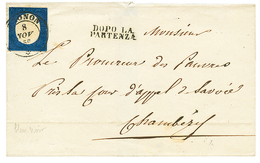 8
NOV
DOPO LA
PARTENZA
Monsieur
Le Procureur des Pauvres
Près la Cour d'appel de Savoie
Chambéry